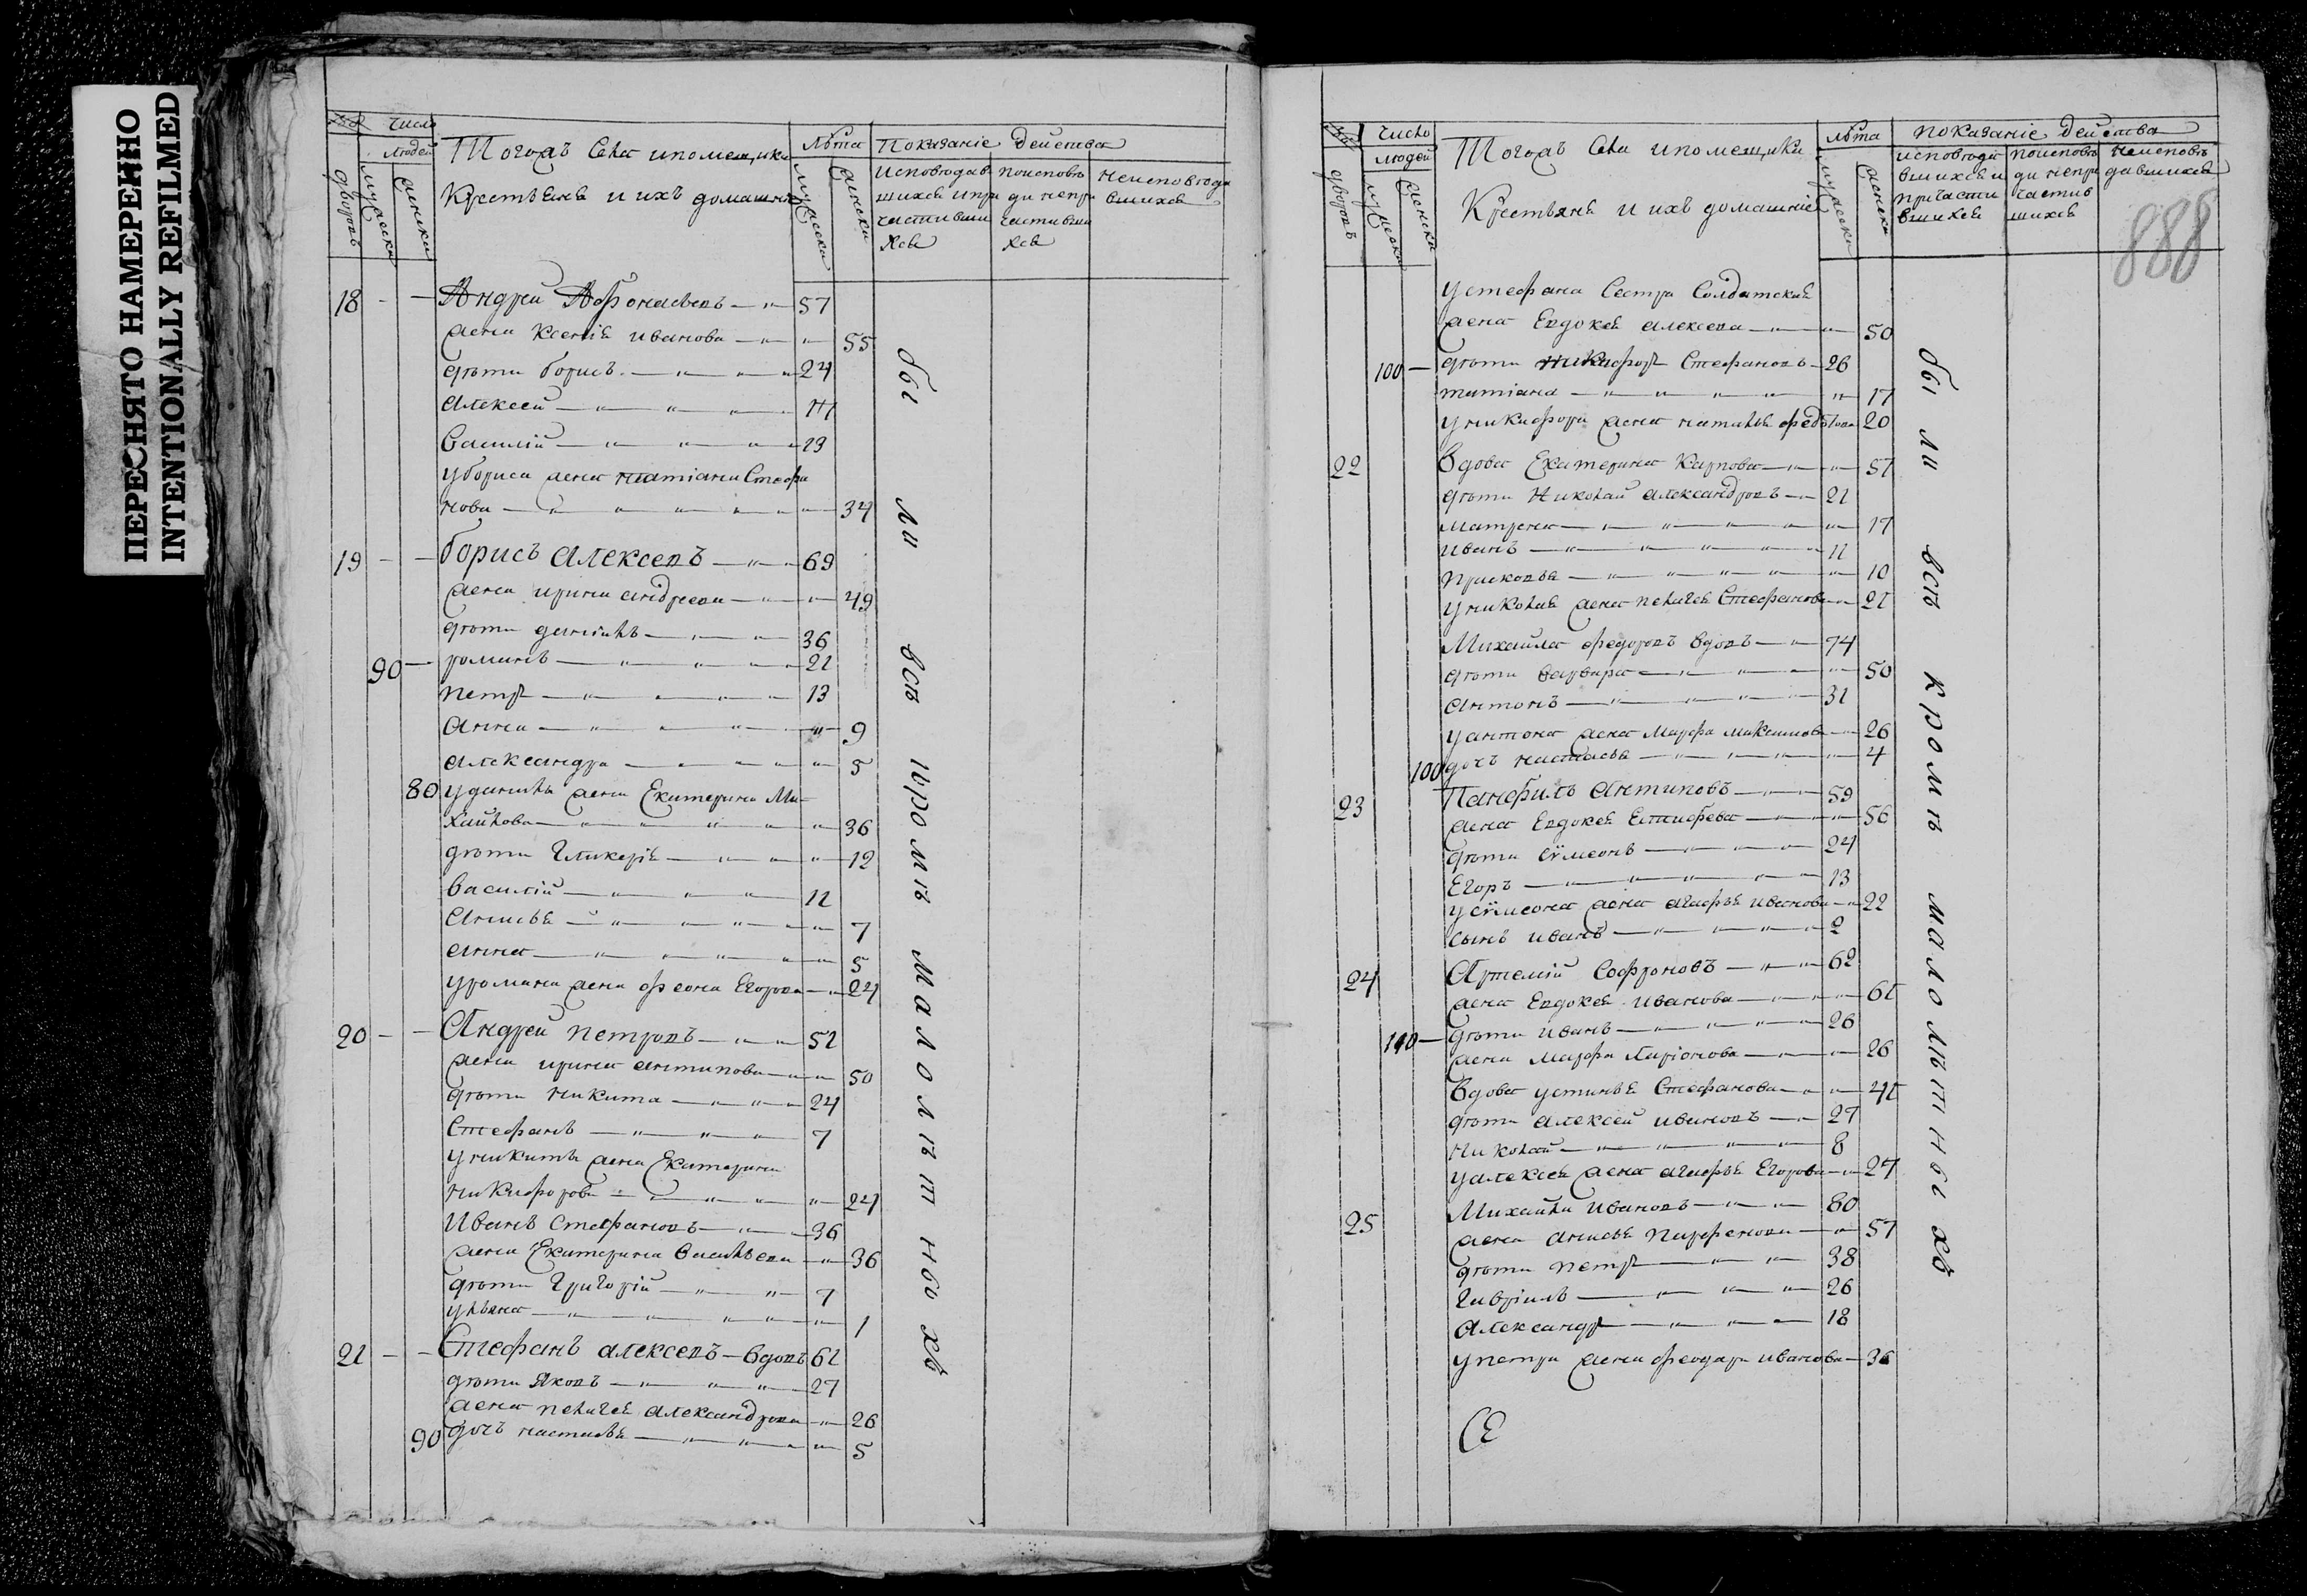 ПЕРЕСНЯТО НАМЕРЕННО
INTENTIONALLY REFILMED
Число
людей
дворовъ
мужеска
женска
Тогожъ Села ипомещика
Крестьяня и ихъ домашнія
лѣта
мужеска
женска
Показаніе действа
исповѣдав
шихся ипри
частивши
хся
поисповѣ
ди непри
частивши
хся
неисповѣда
вшихся
18 Андрей Афонасьевъ 57
жена Ксенія иванова 55
дѣти борисъ 24
алексей 14
Василій 13
убориса жена татіана Стефа
нова 34
19 борисъ алексеевъ 69
жена ирина андреева 49
дѣти данилъ 36
90 романъ 21
петръ 13
Анна 9
александра 5
80 уданилы жена Екатерина Ми-
хайлова 36
дѣти Гликерія 12
василій 11
Анисья 7
анна 5
уромана жена феона Егорова 24
20 Андрей петровъ 51
жена ирина антипова 50
дѣти никита 24
Стефанъ 7
уникиты жена Екатерина
никифорова 24
Иванъ стефановъ 36
жена Екатерина васильева 36
дѣти Григорій 7
ульяна 1
21 Стефанъ алексеевъ вдовъ 61
дѣти Яковъ 27
жена пелагея александрова 26
90 дочь настасья 5
бы ли всѣ кромѣ малолѣтныхъ
Число
людей
дворовъ
мужеска
женска
Тогожъ Села ипомещика
Крестьяня и ихъ домашнія
лѣта
мужеска
женска
показаніе действа
исповѣда
вшихся и
причасти
вшихся
поисповѣ
ди непри
частив
шихся
неисповѣ
давшихся
888
устефана Сестра Солдатская
жена Евдокея алексеева 50
100 дѣти никифоръ Стефановъ 26
татіана 17
уникифора жена наталья федотова 20
22 Вдова Екатерина Карпова 57
дѣти николай александровъ 21
матрена 17
иванъ 11
прасковья 10
униколая жена пелагея Стефанова 21
Михайла федоровъ вдовъ 74
дѣти варвара 50
антонъ 31
уантона жена Марфа максимова 26
100 дочь настасья 4
23 Панфилъ Антиповъ 59
жена Евдокея Естифева 56
дѣти сѵмеонъ 24
Егоръ 13
усѵмеона жена агафья иванова 22
сынъ иванъ 2
24 Артемій Софроновъ 62
жена Евдокея иванова 61
110 дѣти иванъ 26
жена марфа Ларіонова 26
Вдова устинья Стефанова 41
дѣти алексей ивановъ 27
николай 8
уалексея жена агафья Егорова 27
25 Михайла ивановъ 80
жена анисья парфенова 57
дѣти петръ 38
Гавріилъ 26
Александръ 18
упетра жена феодара иванова 36
бы ли всѣ кромѣ малолѣтныхъ